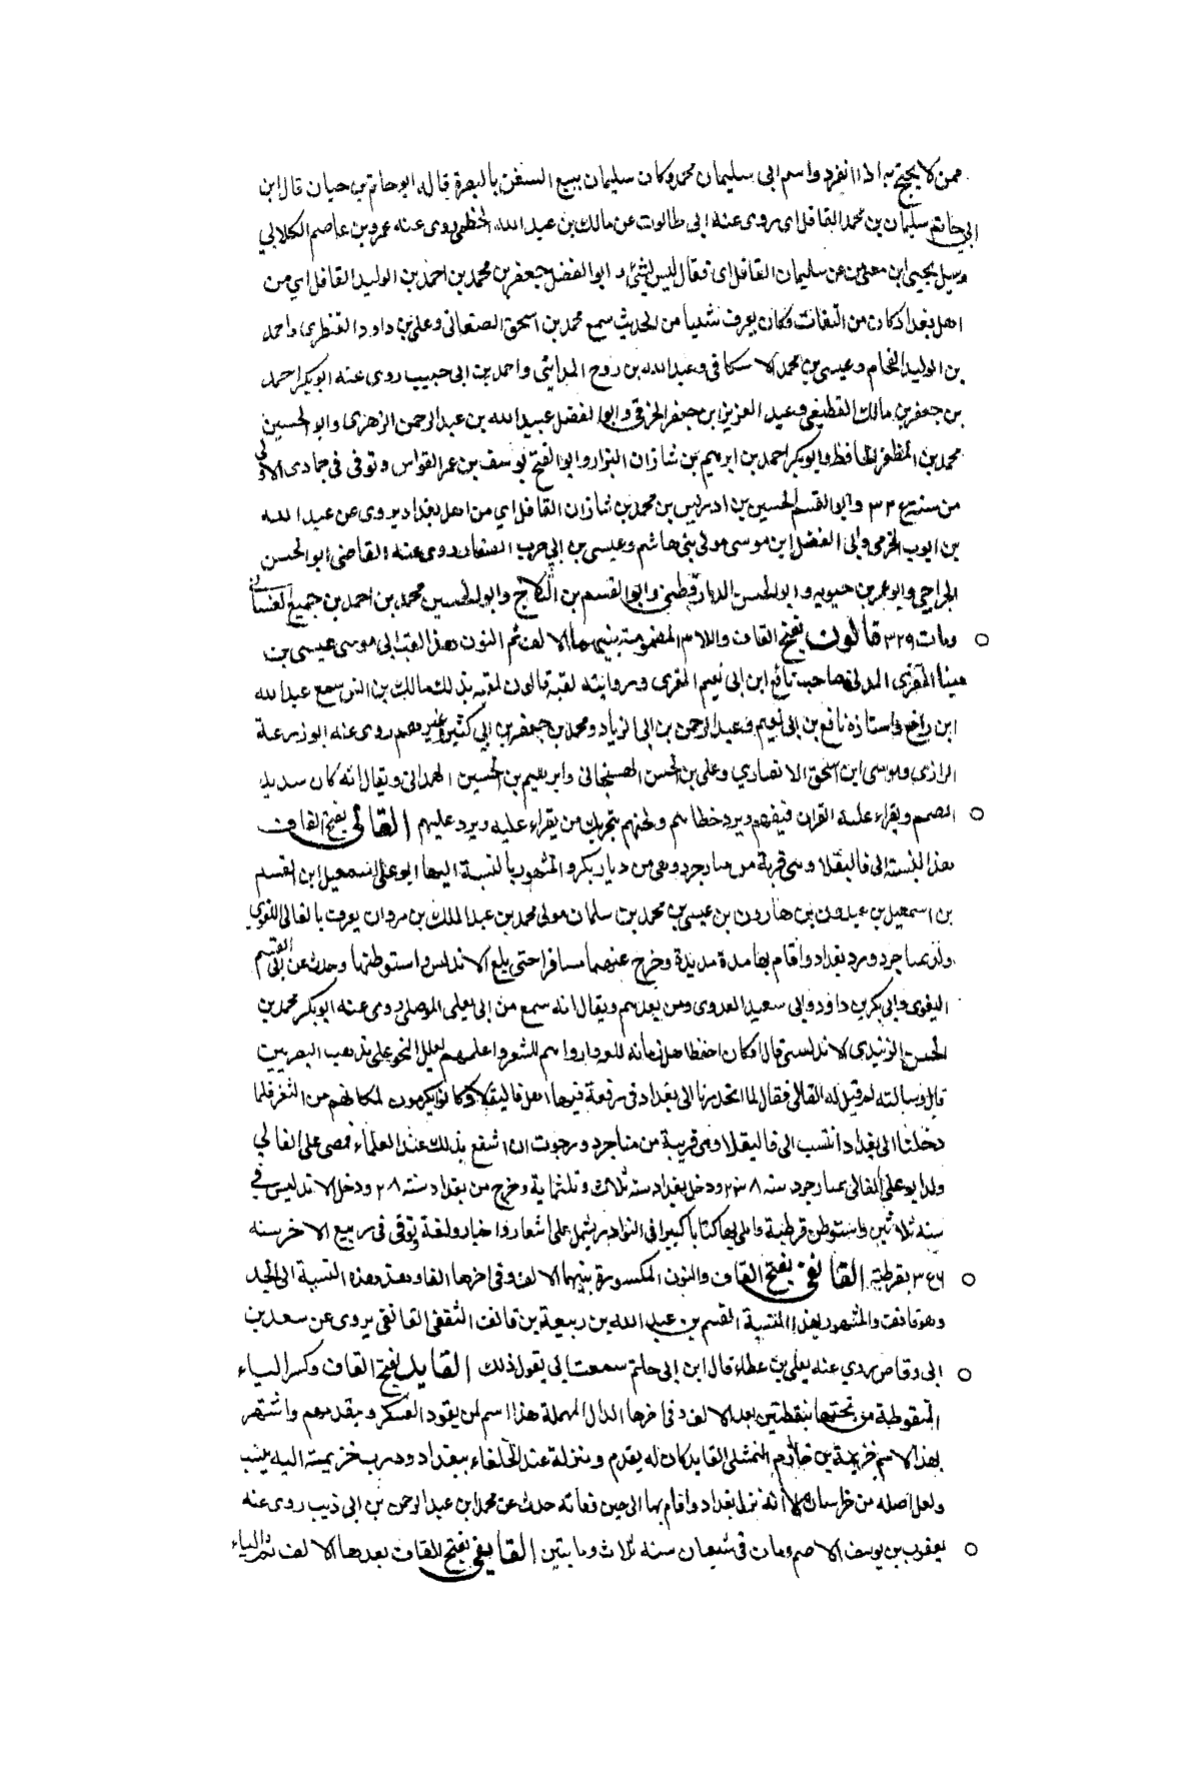 ممن لا يحتج به اذا انفرد واسم ابى سليمان محمد وكان سليمان يبيع السفن بالبصرة قاله ابو حاتم بن حيان قال ابن
ابى حاتم سليمان بن محمد القافلاى روى عنه ابى طالوت عن مالك بن عبد الله الخطمى روى عنه عمرو بن عاصم الكلابي
وسيل يحيى ابن معين عن سليمان القافلاى فقال ليس بشئ و ابو الفضل جعفر بن محمد بن احمد بن الوليد القافلاي من
اهل بغداد كان من الثقات وكان يعرف شيا من الحديث سمع محمد بن اسحق الصغانى وعلى بن داود القنطرى واحمد
بن الوليد الفحام وعيسى بن محمد الاسكافى وعبد الله بن روح المداينى واحمد بن ابى حبيب روى عنه ابو بكر احمد
بن جعفر بن مالك القطيعى وعبد العزيز ابن جعفر الخرقى وابو الفضل عبيد الله بن عبد الرحمن الزهرى وابو الحسين
محمد بن المظفر الحافظ وابو بكر احمد بن ابرهيم بن شاذان البزار وابو الفتح يوسف بن عمر القواس وتوفى فى جمادى الاولى
من سنة ٣٢٤ وابو القسم الحسين بن ادريس بن محمد بن شاذان القافلاي من اهل بغداد يروى عن عبد الله
بن ايوب المخرمى وابى الفضل ابن موسى مولى بنى هاشم وعيسى بن ابي حرب الصفار روى عنه القاضى ابو الحسن
الجراحى وابو عمر بن حيويه وابو الحسن الدارقطنى وابو القسم بن الثلاج وابو الحسين محمد بن احمد بن جميع الغسانى
ومات ٣٢٩ قالون بفتح القاف واللام المضمومة بينهما الالف ثم النون هذا لقب ابى موسى عيسى بن
مينا المقرى المدنى صاحب نافع ابن ابى نعيم المقرى وروايته لقبه قالون لقبه بذلك مالك بن انس سمع عبد الله
ابن رافع واستاذه نافع بن ابى نعيم وعبد الرحمن بن ابى الزياد ومحمد بن جعفر بن ابي كثير وغيرهم روى عنه ابو زرعة
الرازى وموسى ابن اسحق الانصاري وعلى بن الحسن الهسنجانى وابرهيم بن الحسين الهمدانى ويقال انه كان شديد
الصمم ويقراء عليه القران فيفهم ويرد خطاهم ولحنهم بتحريك من يقراء عليه ويرد عليهم القالى بفتح القاف
هذا النسبة الى قاليقلا وهى قرية من منارجرد وهى من ديار بكر والمشهور بالنسبة اليها ابو على اسمعيل ابن القسم
بن اسمعيل بن عيدون بن هارون بن عيسى بن محمد بن سلمان مولى محمد بن عبد الملك بن مروان يعرف بالقالى اللغوى
ولد بمنا جرد وورد بغداد واقام بها مدة مديدة وخرج عنها مسافرا حتى بلغ الاندلس واستوطنها وحدث عن ابى القسم
البغوى وابى بكر بن داود وابى سعيد العدوى ومن بعدهم ويقال انه سمع من ابى يعلى الموصلى روى عنه ابو بكر محمد بن
الحسن الزبيدى الاندلسى قال وكان احفظ اهل زمانه للغة وارواهم للشعر واعلمهم بعلل النحو على مذهب البصريين
قال وسالته لم قيل له القالى فقال لما انحدرنا الى بغداد فى رفقة فيها اهل قاليقلا وكانوا يكرمون لمكانهم من الثغر فلما
دخلنا الى بغداد انتسب الى قاليقلا وهى قريبة من مناجرد ورجوت ان انتفع بذلك عند العلماء فمضى على القالي
ولد ابو على القالى بمنارجرد سنه ٢٨٨ ودخل بغداد سنه ثلاث وثلثماية وخرج من بغداد سنة ٣٢٨ ودخل الاندليس في
سنه ثلاثين واستوطن قرطبة واملى بها كتابا كبيرا فى النوادر يشمل على اشعار واخبار ولغة وتوفى فى ربيع الاخر سنه
٣٤٦ بقرطبة القانفى بفتح القاف والنون المكسورة بينهما الالف وفى اخرها الفاء هذه النسبة الى الجد
وهو قانف والمشهور بهذا النسبة القسم بن عبد الله بن ربيعة بن قانف الثقفى القانفى يروى عن سعد بن
ابى وقاص روي عنه يعلى بن عطاء قال ابن ابى حاتم سمعت ابي يقول ذلك القايد بفتح القاف وكسر الياء
المنقوطة من تحتها بنقطتين بعد الالف وفى اخرها الدال المهملة هذا اسم لمن يقود العسكر ومقدمهم واشتهر
بهذا الاسم خزيمة بن خازم النهشلى القايد كان له يقدم ومنزلة عند الخلفاء ببغداد ودرب خزيمة اليه ينسب
ولعل اصله من خراسان الا انه نزل بغداد واقام بها الى حين وفاته حدث عن محمد ابن عبد الرحمن بن ابى ذيب روى عنه
يعقوب بن يوسف الاصم ومات فى شعبان سنه ثلاث ومايتين القايفى بفتح القاف بعدها الالف ثم الياء